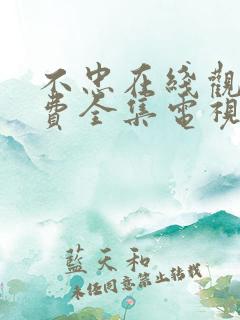 不忠在綫觀
費全集電視
藍天和
未经同意禁止转载